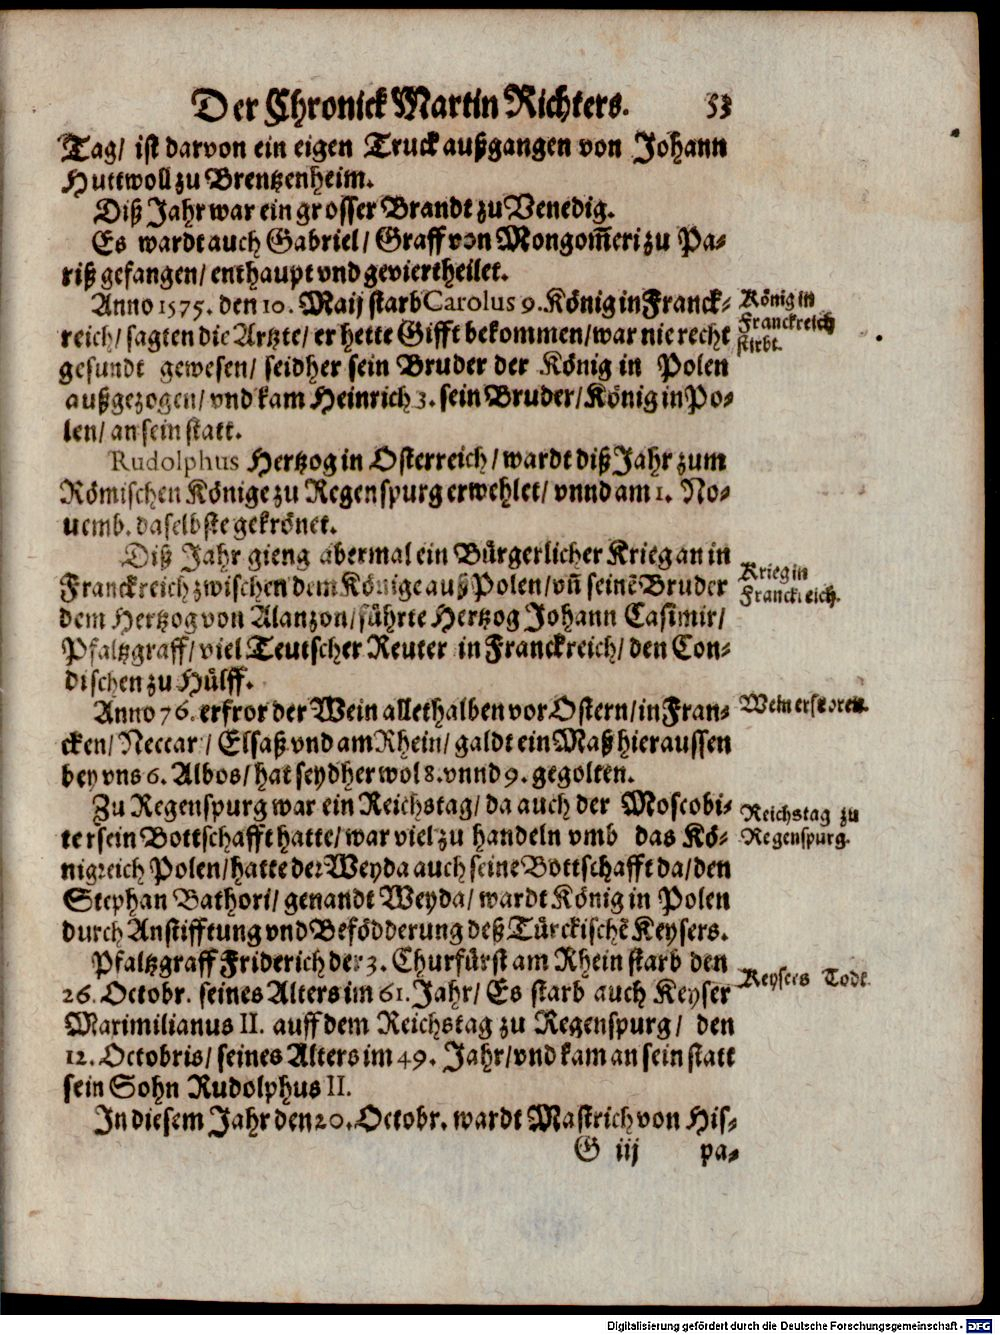 Der Chronick Martin Richters. 53
Tag/ ist darvon ein eigen Truck außgangen von Johann
Huttwoll zu Brentzenheim.
Diß Jahr war ein grosser Brandt zu Venedig.
Es wardt auch Gabriel/ Graff von Mongom̃eri zu Pa-
riß gefangen/ enthaupt vnd geviertheilet.
Anno 1575. den 10. Maij starb Carolus 9. König in Franck-
reich/ sagten die Artzte/ er hette Gifft bekommen/ war nie recht
gesundt gewesen/ seidher sein Bruder der König in Polen
außgezogen/ vnd kam Heinrich 3. sein Bruder/ König in Po-
len/ an sein statt.
König in
Franckreich
stirbt.
Rudolphus Hertzog in Osterreich/ wardt diß Jahr zum
Römischen Könige zu Regenspurg erwehlet/ vnnd am 1. No-
uemb. daselbste gekrönet.
Diß Jahr gieng abermal ein Bürgerlicher Krieg an in
Franckreich zwischen dem Könige auß Polen/ vñ seinẽ Bruder
dem Hertzog von Alanzon/ führte Hertzog Johann Casimir/
Pfaltzgraff/ viel Teutscher Reuter in Franckreich/ den Con-
dischen zu Hülff.
Krieg in
Franckreich.
Anno 76. erfror der Wein allethalben vor Ostern/ in Fran-
cken/ Neccar/ Elsaß vnd am Rhein/ galdt ein Maß hieraussen
bey vns 6. Albos/ hat seydher wol 8. vnnd 9. gegolten.
Wein erfroren.
Zu Regenspurg war ein Reichstag/ da auch der Moscobi-
ter sein Bottschafft hatte/ war viel zu handeln vmb das Kö-
nigreich Polen/ hatte der Weyda auch seine Bottschafft da/ den
Stephan Bathori/ genandt Weyda/ wardt König in Polen
durch Anstifftung vnd Befödderung deß Türckischẽ Keysers.
Reichstag zu
Regenspurg.
Pfaltzgraff Friderich der 3. Churfürst am Rhein starb den
26. Octobr. seines Alters im 61. Jahr/ Es starb auch Keyser
Maximilianus II. auff dem Reichstag zu Regenspurg/ den
12. Octobris/ seines Alters im 49. Jahr/ vnd kam an sein statt
sein Sohn Rudolphus II.
Keysers Todt.
In diesem Jahr den 20. Octobr. wardt Mastrich von His-
G iij pa-
Digitalisierung gefördert durch die Deutsche Forschungsgemeinschaft - DFG